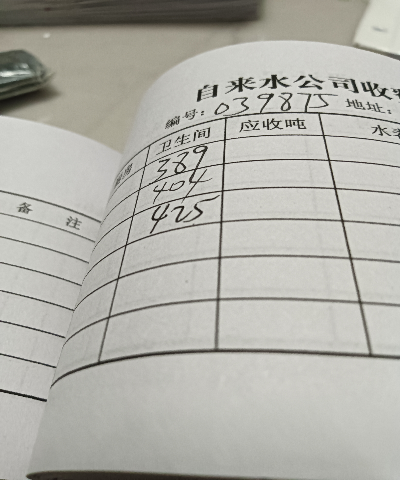 自来水公司收
编号: 039875 地址:
卫生间 应收吨 水
389
404
425
备 注